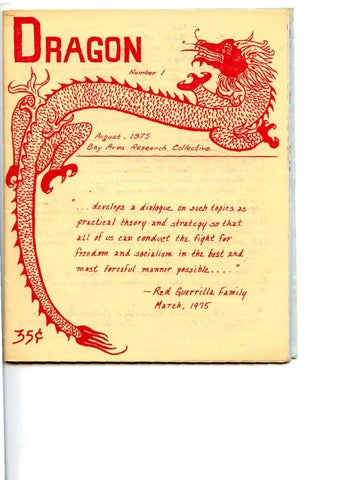 DRAGON
Number 1
August, 1975
Bay Area Research Collective
"... develope a dialogue on such topics as
practical theory and strategy so that
all of us can conduct the fight for
freedom and socialism in the best and
most forceful manner possible...."
— Red Guerrilla Family
March, 1975
35¢